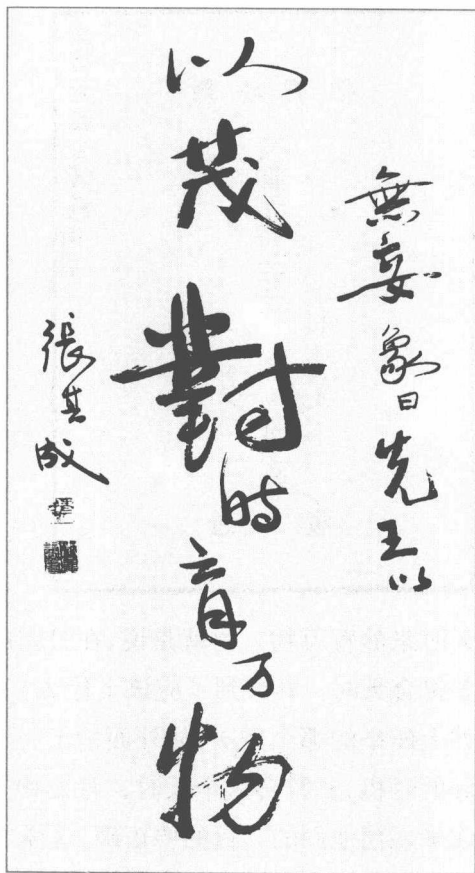 無妄象曰先王以
以茂對時育万物
張其成